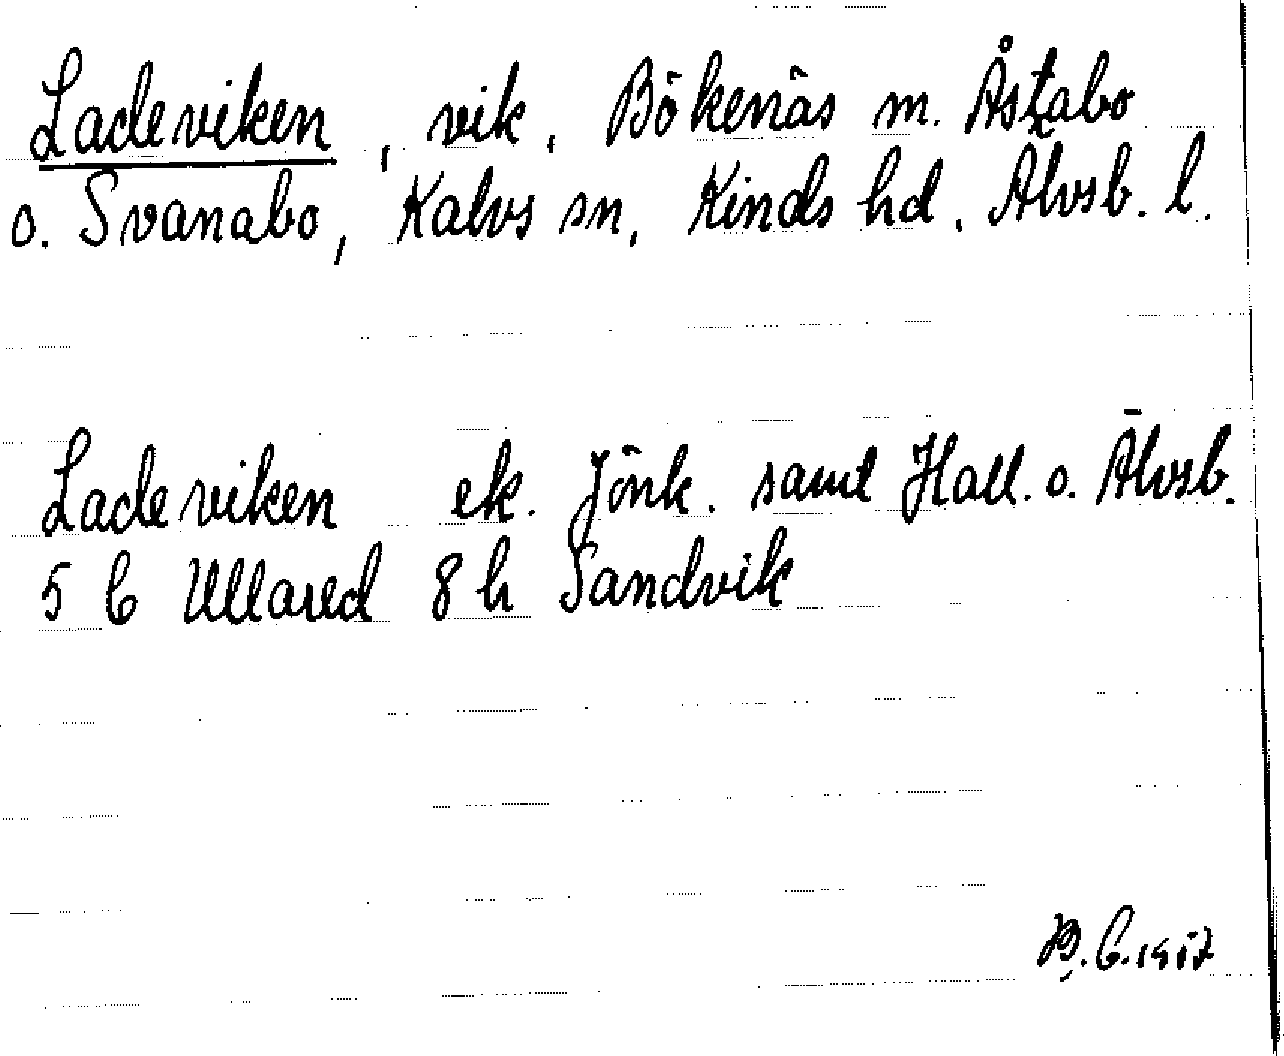 Ladeviken, vik, Bökenäs m. Åstabo
o. Svanabo, Kalvs sn, Kinds hd, Älvsb. l.
Ladeviken ek. Jönk. samt Hall. o. Älvsb.
5 C Ullared 8 h Sandvik